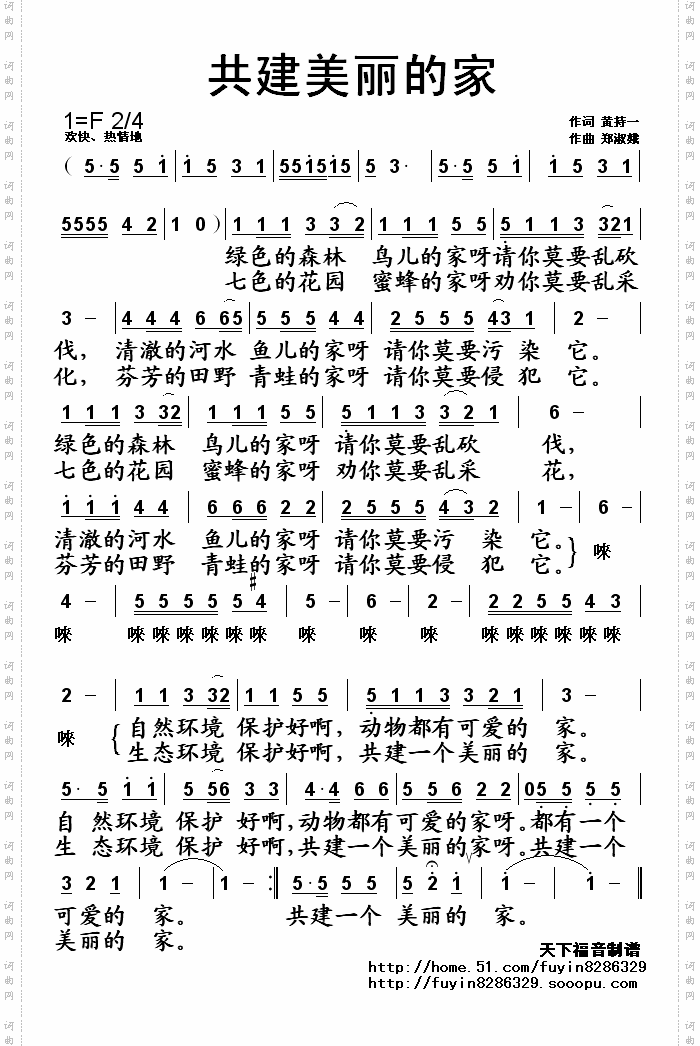 共建美丽的家
1=F 2/4
欢快、热情地
作词 黄持一
作曲 郑淑娥
( 5·5 5 1 | 1 5 3 1 | 551515 | 5 3· | 5·5 5 1 | 1 5 3 1 |
5555 4 2 | 1 0 ) | 1 1 1 3 3 2 | 1 1 1 5 5 | 5 1 1 3 321
绿色的森林 鸟儿的家呀请你莫要乱砍
七色的花园 蜜蜂的家呀劝你莫要乱采
3 − | 4 4 4 6 65 | 5 5 5 4 4 | 2 5 5 5 43 1 | 2 − |
伐, 清澈的河水 鱼儿的家呀 请你莫要污 染 它。
化, 芬芳的田野 青蛙的家呀 请你莫要侵 犯 它。
1 1 1 3 32 | 1 1 1 5 5 | 5 1 1 3 3 2 1 | 6 −
绿色的森林 鸟儿的家呀 请你莫要乱砍 伐,
七色的花园 蜜蜂的家呀 劝你莫要乱采 花,
1 1 1 4 4 | 6 6 6 2 2 | 2 5 5 5 4 3 2 | 1 − | 6 −
清澈的河水 鱼儿的家呀 请你莫要污 染 它。
芬芳的田野 青蛙的家呀 请你莫要侵 犯 它。
唻
4 − | 5 5 5 5 5 #4 | 5 − | 6 − | 2 − | 2 2 5 5 4 3
唻 唻 唻 唻 唻 唻 唻 唻 唻 唻 唻 唻 唻 唻 唻 唻
2 − | 1 1 3 32 | 1 1 5 5 | 5 1 1 3 3 2 1 | 3 − |
唻
自然环境 保护好啊, 动物都有可爱的 家。
生态环境 保护好啊, 共建一个美丽的 家。
5· 5 1 1 | 5 56 3 3 | 4·4 6 6 | 5 5 6 2 2 | 05 5 5 5
自 然环境 保护 好啊,动物都有可爱的家呀。都有一个
生 态环境 保护 好啊,共建一个美丽的家呀。共建一个
3 2 1 | 1 − | 1 − :‖ 5·5 5 5 | 5 2 1 | 1 − | 1 − ‖
可爱的 家。 共建一个 美丽的 家。
美丽的 家。
天下福音制谱
http://home.51.com/fuyin8286329
http://fuyin8286329.sooopu.com